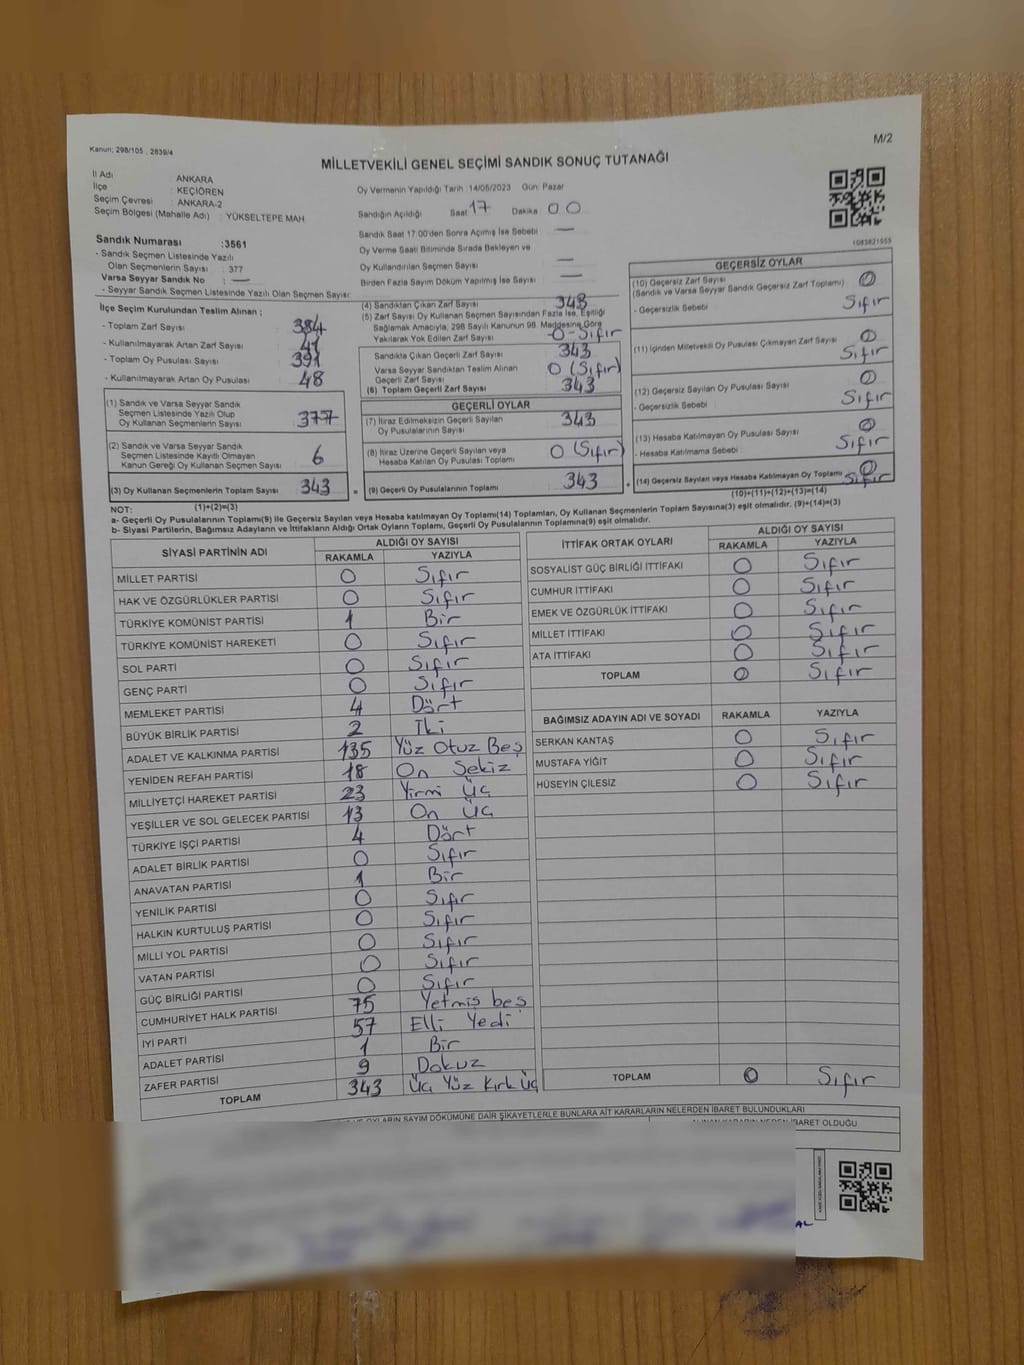 M/2
Kanun; 298/105 , 2839/4
MİLLETVEKİLİ GENEL SEÇİMİ SANDIK SONUÇ TUTANAĞI
İl Adı : ANKARA
İlçe : KEÇİÖREN
Seçim Çevresi : ANKARA-2
Seçim Bölgesi (Mahalle Adı) : YÜKSELTEPE MAH
Sandık Numarası :3561
- Sandık Seçmen Listesinde Yazılı
Olan Seçmenlerin Sayısı : 377
Varsa Seyyar Sandık No : —
- Seyyar Sandık Seçmen Listesinde Yazılı Olan Seçmen Sayısı:
Oy Vermenin Yapıldığı Tarih :14/05/2023 Gün: Pazar
Sandığın Açıldığı Saat 17 Dakika 00
Sandık Saat 17:00'den Sonra Açımış İse Sebebi : —
Oy Verme Saati Bitiminde Sırada Bekleyen ve
Oy Kullandırılan Seçmen Sayısı : —
Birden Fazla Sayım Döküm Yapılmış İse Sayısı : —
1083821555
İlçe Seçim Kurulundan Teslim Alınan ;
- Toplam Zarf Sayısı : 384
- Kullanılmayarak Artan Zarf Sayısı : 41
- Toplam Oy Pusulası Sayısı : 391
- Kullanılmayarak Artan Oy Pusulası : 48
(1) Sandık ve Varsa Seyyar Sandık
Seçmen Listesinde Yazılı Olup
Oy Kullanan Seçmen Sayısı : 377
(2) Sandık ve Varsa Seyyar Sandık
Seçmen Listesinde Kayıtlı Olmayan
Kanun Gereği Oy Kullanan Seçmen Sayısı : 6
(3) Oy Kullanan Seçmenlerin Toplam Sayısı : 343
(4) Sandıktan Çıkan Zarf Sayısı : 343
(5) Zarf Sayısı Oy Kullanan Seçmen Sayısından Fazla İse, Eşitliği
Sağlamak Amacıyla, 298 Sayılı Kanunun 98. Maddesine Göre
Yakılarak Yok Edilen Zarf Sayısı : 0-Sıfır
Sandıkta Çıkan Geçerli Zarf Sayısı : 343
Varsa Seyyar Sandıktan Teslim Alınan
Geçerli Zarf Sayısı : 0 (Sıfır)
(6) Toplam Geçerli Zarf Sayısı : 343
GEÇERLİ OYLAR
(7) İtiraz Edilmeksizin Geçerli Sayılan
Oy Pusulalarının Sayısı : 343
(8) İtiraz Üzerine Geçerli Sayılan veya
Hesaba Katılan Oy Pusulası Toplamı : 0 (Sıfır)
(9) Geçerli Oy Pusulalarının Toplamı : 343
GEÇERSİZ OYLAR
(10) Geçersiz Zarf Sayısı : 0
(Sandık ve Varsa Seyyar Sandık Geçersiz Zarf Toplamı)
- Geçersizlik Sebebi : Sıfır
(11) İçinden Milletvekili Oy Pusulası Çıkmayan Zarf Sayısı : 0 Sıfır
(12) Geçersiz Sayılan Oy Pusulası Sayısı : 0
- Geçersizlik Sebebi : Sıfır
(13) Hesaba Katılmayan Oy Pusulası Sayısı : 0
- Hesaba Katılmama Sebebi : Sıfır
(14) Geçersiz Sayılan veya Hesaba Katılmayan Oy Toplamı : 0 Sıfır
NOT: (1)+(2)=(3)
(10)+(11)+(12)+(13)=(14)
a- Geçerli Oy Pusulasının Toplamı(9) ile Geçersiz Sayılan veya Hesaba katılmayan Oy Toplamı(14) Toplamları, Oy Kullanan Seçmenlerin Toplam Sayısına(3) eşit olmalıdır. (9)+(14)=(3)
b- Siyasi Partilerin, Bağımsız Adayların ve İttifakların Aldığı Ortak Oyların Toplamı, Geçerli Oy Pusulalarının Toplamına(9) eşit olmalıdır.
SİYASİ PARTİNİN ADI ALDIĞI OY SAYISI
RAKAMLA YAZIYLA
MİLLET PARTİSİ 0 Sıfır
HAK VE ÖZGÜRLÜKLER PARTİSİ 0 Sıfır
TÜRKİYE KOMÜNİST PARTİSİ 1 Bir
TÜRKİYE KOMÜNİST HAREKETİ 0 Sıfır
SOL PARTİ 0 Sıfır
GENÇ PARTİ 0 Sıfır
MEMLEKET PARTİSİ 4 Dört
BÜYÜK BİRLİK PARTİSİ 2 İki
ADALET VE KALKINMA PARTİSİ 135 Yüz Otuz Beş
YENİDEN REFAH PARTİSİ 18 On Sekiz
MİLLİYETÇİ HAREKET PARTİSİ 23 Yirmi Üç
YEŞİLLER VE SOL GELECEK PARTİSİ 13 On Üç
TÜRKİYE İŞÇİ PARTİSİ 4 Dört
ADALET BİRLİK PARTİSİ 0 Sıfır
ANAVATAN PARTİSİ 1 Bir
YENİLİK PARTİSİ 0 Sıfır
HALKIN KURTULUŞ PARTİSİ 0 Sıfır
MİLLİ YOL PARTİSİ 0 Sıfır
VATAN PARTİSİ 0 Sıfır
GÜÇ BİRLİĞİ PARTİSİ 0 Sıfır
CUMHURİYET HALK PARTİSİ 75 Yetmiş beş
İYİ PARTİ 57 Elli Yedi
ADALET PARTİSİ 1 Bir
ZAFER PARTİSİ 9 Dokuz
TOPLAM 343 Üç Yüz Kırk Üç
İTTİFAK ORTAK OYLARI ALDIĞI OY SAYISI
RAKAMLA YAZIYLA
SOSYALİST GÜÇ BİRLİĞİ İTTİFAKI 0 Sıfır
CUMHUR İTTİFAKI 0 Sıfır
EMEK VE ÖZGÜRLÜK İTTİFAKI 0 Sıfır
MİLLET İTTİFAKI 0 Sıfır
ATA İTTİFAKI 0 Sıfır
TOPLAM 0 Sıfır
BAĞIMSIZ ADAYIN ADI VE SOYADI RAKAMLA YAZIYLA
SERKAN KANTAŞ 0 Sıfır
MUSTAFA YİĞİT 0 Sıfır
HÜSEYİN ÇİLESİZ 0 Sıfır
TOPLAM 0 Sıfır
OYLARIN SAYIM DÖKÜMÜNE DAİR ŞİKAYETLERLE BUNLARA AİT KARARLARIN NELERDEN İBARET BULUNDUKLARI